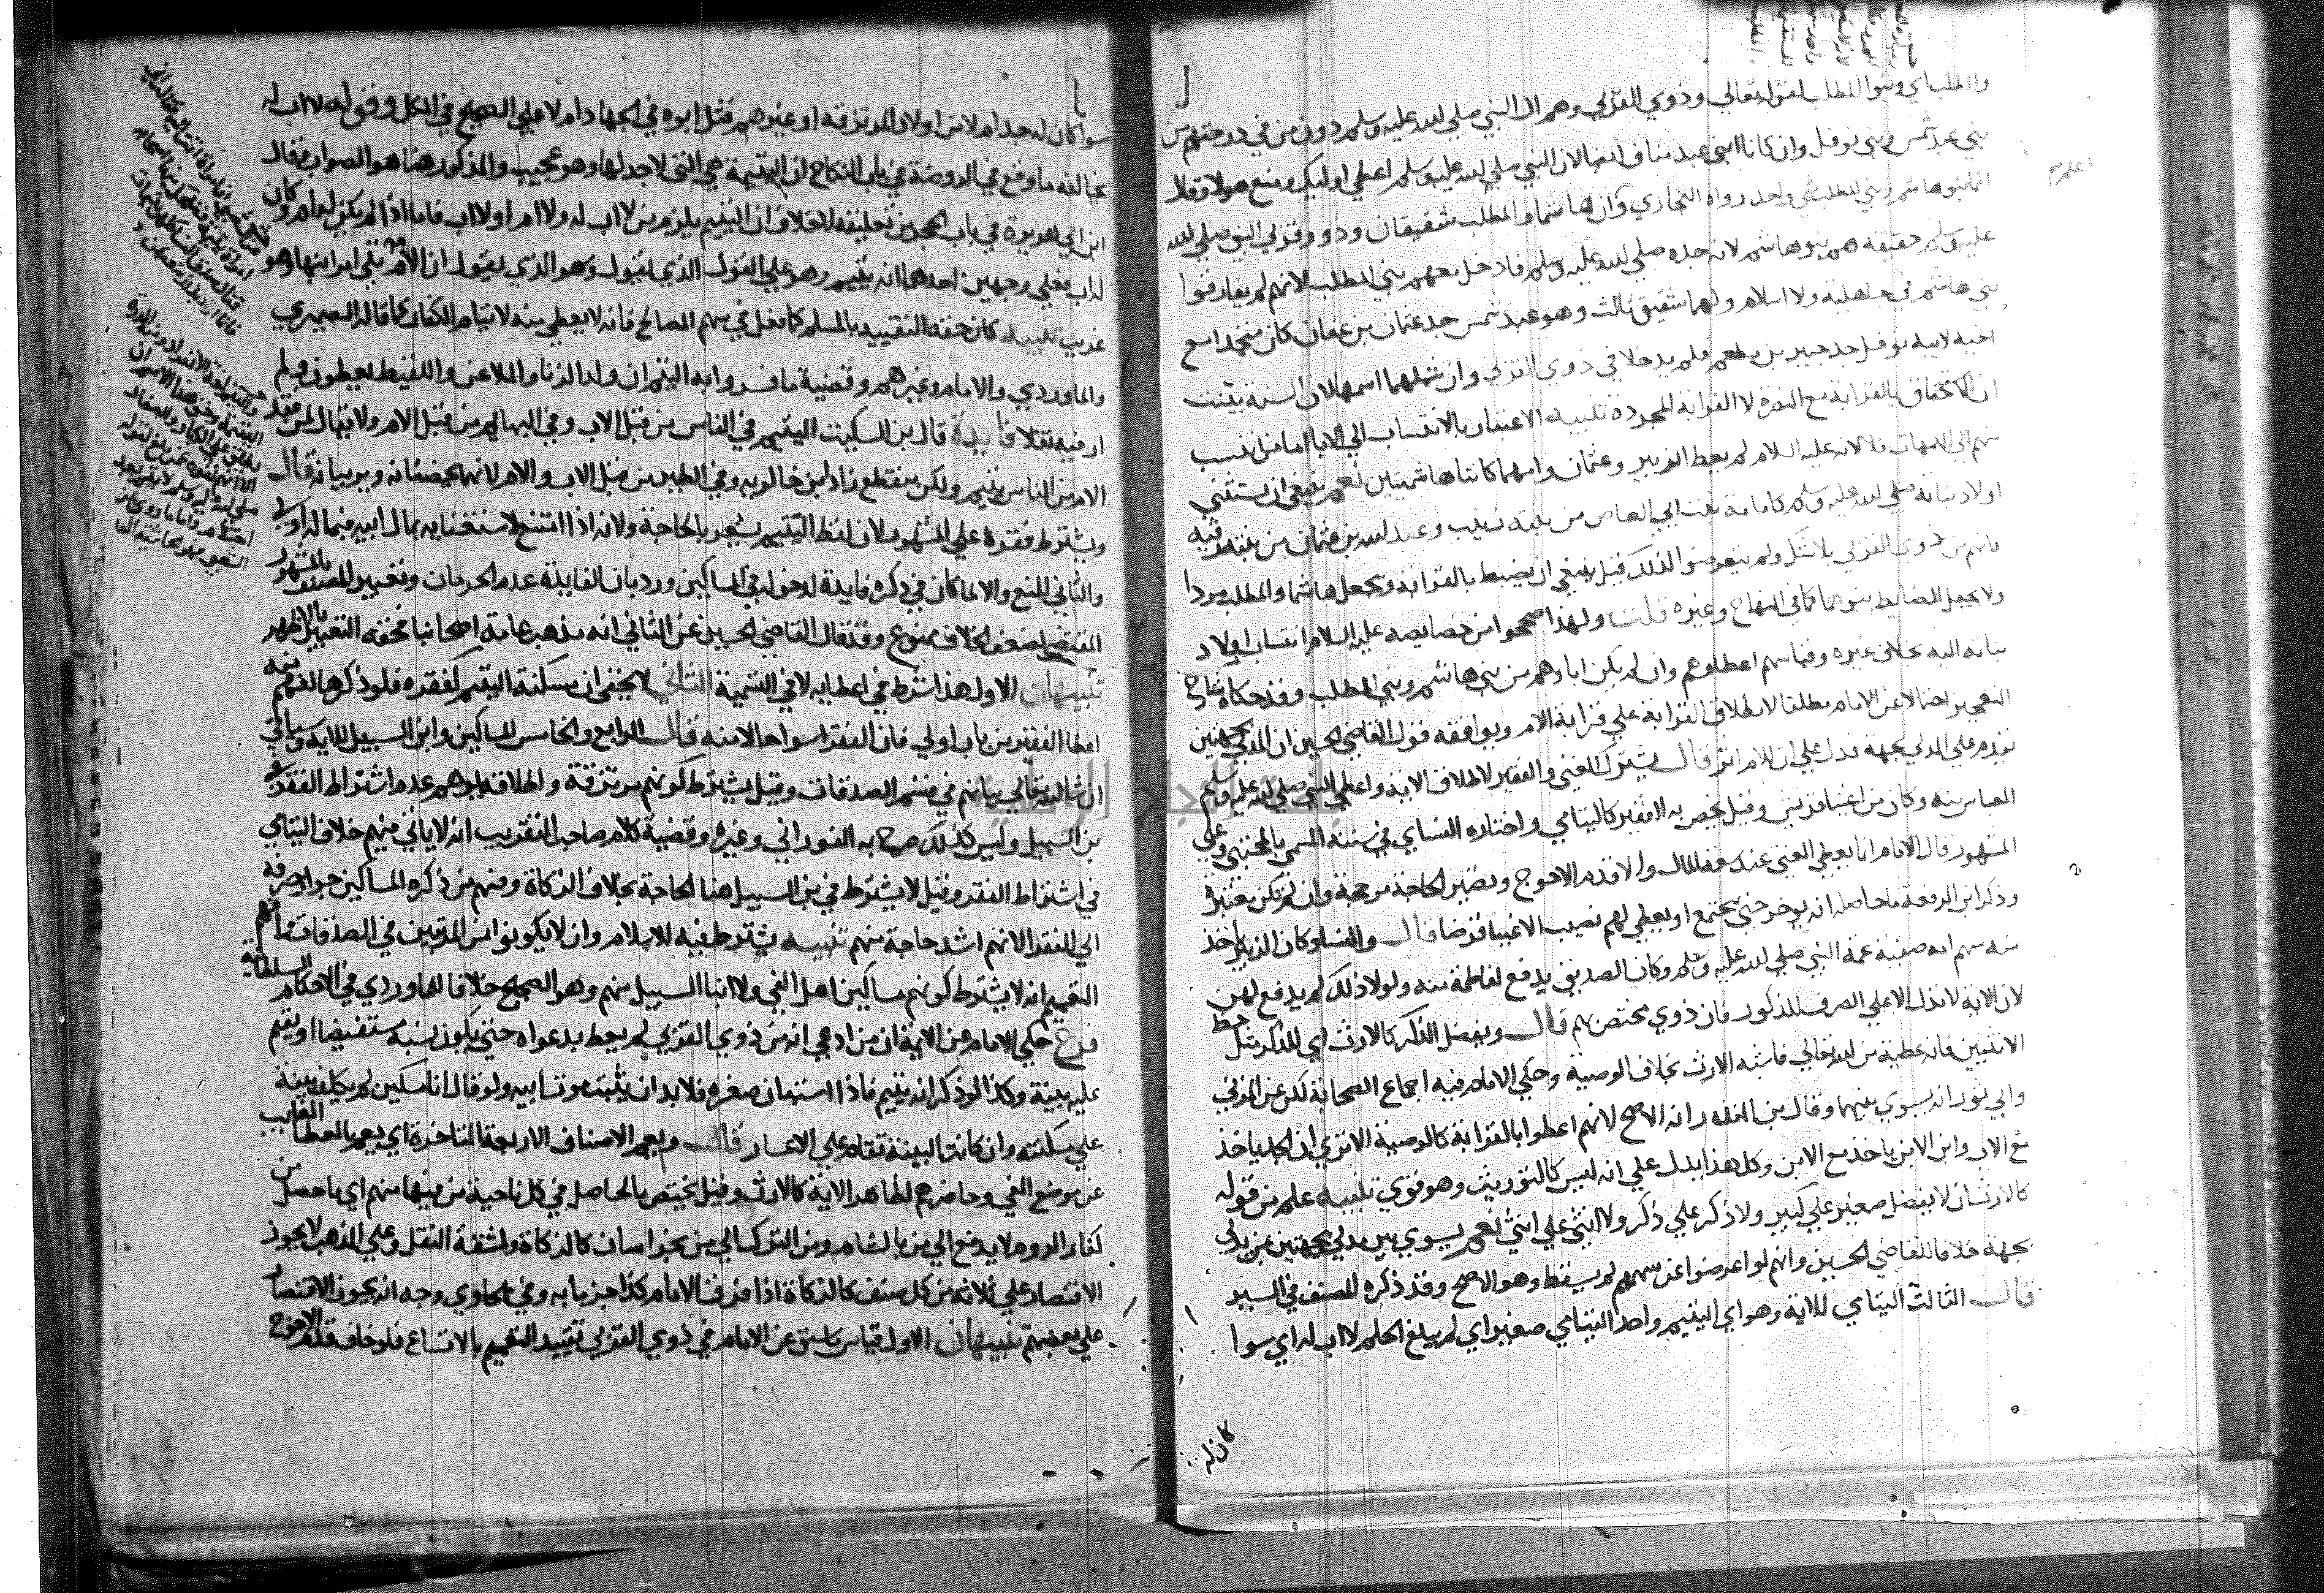 والمطلب اي وبنوا المطلب لقوله تعالي وذوي القربي وهم ال النبي صلي الله عليه وسلم دون من في درجتهم من
بني عبد شمس وبني نوفل وان كانا ابني عبد مناف ايضا لان النبي صلي الله عليه وسلم اعطي اوليك ومنع هولا وقال
انما بنو هاشم وبني المطلب شي واحد رواه البخاري وان هاشما والمطلب شقيقان وذوو قربي النبي صلي الله
عليه وسلم حقيقة هم بنو هاشم لانه جده صلي الله عليه وسلم فادخل معهم بني المطلب لانهم لم يفارقوا
بني هاشم في جاهلية ولا اسلام ولهما شقيق ثالث وهو عبد شمس جد عثمان بن عفان كان متحدا مع
اخيه لابيه نوفل جد جبير بن مطعم ولم يدخلا في ذوي القربي وان شملهما اسمها لان السنة بينت
ان الاستحقاق بالقرابة مع النصرة لا القرابة المجردة تنبيه الاعتبار بالانتساب الي الابا اما من انتسب
منهم الي الامهات فلا لانه عليه السلام لم يعط الزبير وعثمان وامهما كانتا هاشميتين نعم ينبغي ان يستثني
اولاد بناته صلي الله عليه وسلم كامامة بنت ابي العاص من بنته زينب وعبد الله بن عثمان من بنته رقية
فانهم من ذوي القربي بلا شك ولم يتعرضوا لذلك قيل ينبغي ان يضبط بالقرابة ويجعل هاشما والمطلب مردا
ولا يجعل الضابط بنوهما كما في المنهاج وغيره قلت ولهذا صححوا من خصايصه عليه السلام انتساب اولاد
بناته اليه بخلاف غيره وفيما سهم اعطاوهم وان لم يكن اباوهم من بني هاشم وبني المطلب وقد حكاه شارح
التعجيز احتمالا عن الامام مطلقا لانطلاق القرابة علي قرابة الام ويوافقه قول القاضي الحسين ان المدلي بجهتين
يقدم علي المدلي بجهة فدل علي ان للام اثرا قال يشترك الغني والفقير لاطلاق الاية واعطي النبي صلي الله عليه وسلم
العباس منه وكان من اغنيا قريش وقيل يختص به الفقير كاليتامي واختاره النساي في سننه المسمي بالمجتبي وعلي
المشهور قال الامام انما يعطي الغني عند سعة المال والا قدم الاحوج وتصير الحاجة مرجحة وان لم تكن معتبرة
وذكر ابن الرفعة ما حاصله انه يوخر حتي يجتمع او يعطي لهم نصيب الاغنيا قرضا قال والنسا وكان الزبير ياخذ
منه سهم امه صفية عمة النبي صلي الله عليه وسلم وكان الصديق يدفع لفاطمة منه ولولا ذلك لم يدفع لهن
لان الاية لا تدل الا علي الصرف للذكور فان ذوي مختص بهم قال ويفضل الذكر كالارث اي للذكر مثل حظ
الانثيين فانه عطية من الله تعالي فاشبه الارث بخلاف الوصية وحكي الامام فيه اجماع الصحابة لكن عن المزني
وابي ثور انه يسوي بينهما وقال بن المنذر انه الاصح لانهم اعطوا بالقرابة كالوصية الا تري ان الجد ياخذ
مع الاب وابن الابن ياخذ مع الابن وكل هذا يدل علي انه ليس كالتوريث وهو قوي تنبيه علم من قوله
كالارث ان لا يفضل صغير علي كبير ولا ذكر علي ذكر ولا انثي علي انثي نعم يسوي بين مدلي بجهتين ومن يدلي
بجهة خلافا للقاضي الحسين وانهم لو اعرضوا عن سهمهم لم يسقط وهو الاصح وقد ذكره المصنف في السير
قال الثالث اليتامي للاية وهو اي اليتيم واحد اليتامي صغير اي لم يبلغ الحلم لا اب له اي سوا
كان له
سوا كان له جد ام لا من اولاد المرتزقة او غيرهم قتل ابوه في الجهاد ام لا علي الصحيح في الكل وقوله لا اب له
يخالفه ما وقع في الروضة في باب النكاح ان اليتيمة هي التي لا جد لها وهو عجيب والمذكور هنا هو الصواب وقال
ابن ابي هريرة في باب الحجر من تعليقه لا خلاف ان اليتيم يلزم من لا اب له ولا ام او لا اب فاما اذا لم يكن له ام وكان
له اب فعلي وجهين احدهما انه يتيم وهو علي القول الذي يقول وهو الذي يقول ان الام تلي امر ابنها وهو
غريب تنبيه كان حقه التقييد بالمسلم كما فعل في سهم المصالح فانه لا يعطي منه لايتام الكفار كما قاله الصيمري
والماوردي والامام وغيرهم وقضية ما فسروا به اليتيم ان ولد الزنا والملاعن واللقيط يعطون ولم
ار فيه نقلا فايدة قال بن السكيت اليتيم في الناس من قبل الاب وفي البهايم من قبل الام ولا يقال لمن فقد
الام من الناس يتيم ولكن منقطع زاد ابن خالويه وفي الطير من قبل الاب والام لانهما يحضنانه ويربيانه قال
ويشترط فقره علي المشهور لان لفظ اليتيم يشعر بالحاجة ولانه اذا امتنع لاستغنايه بمال ابيه فبماله اولي
والثاني المنع والا لما كان في ذكره فايدة لدخوله في المساكين ورد بان الفايدة عدم الحرمان وتعبير المصنف بالمشهور
المقتضي لضعف الخلاف ممنوع وقد قال القاضي الحسين عن الثاني انه مذهب عامة اصحابنا فحقه التعبير بالاظهر
تنبيهان الاول هذا شرط في اعطايه لا في التسمية الثاني لا يخفي ان مسكنة اليتيم كفقره فلو ذكرها لفهم منه
اعطا الفقير من باب اولي فان الفقر اسوا حالا منه قال الرابع والخامس المساكين وابن السبيل للاية وسياتي
ان شا الله تعالي بيانهم في قسم الصدقات وقيل يشترط كونهم مرتزقة واطلاقه يوهم عدم اشتراط الفقر في
بن السبيل وليس كذلك صرح به الفوراني وغيره وقضية كلام صاحب التقريب انه لا ياتي فيهم خلاف اليتامي
في اشتراط الفقر وقيل لا يشترط في بن السبيل هنا الحاجة بخلاف الزكاة وفهم من ذكره المساكين جواز صرفه
الي الفقرا لانهم اشد حاجة منهم تنبيه يشترط فيه الاسلام وان لا يكونوا من المرتبين في الصدقات وافهم
التعميم انه لا يشترط كونهم مساكين اهل الفي ولا ابنا السبيل منهم وهو الصحيح خلافا للماوردي في الاحكام السلطانية
فرع حكي الامام عن الايمة ان من ادعي انه من ذوي القربي لم يعط بدعواه حتي يكون نسبه مستفيضا او يقيم
عليه بينة وكذا لو ذكر انه يتيم فاذا استبان صغره فلا بد ان يثبت موت ابيه ولو قال انا مسكين لم يكلف بينة
علي مسكنته وان كانت البينة تقام علي الاعسار قال ويعم الاصناف الاربعة المتاخرة اي يعم بالعطا الغايب
عن موضع الفي وحاضرهم لظاهر الاية كالارث وقيل يختص بالحاصل في كل ناحية من فيها منهم اي ما حصل من
كفار الروم لا يدفع الي من بالشام ومن الترك الي من بخراسان كالزكاة ولمشقة النقل وعلي المذهب لا يجوز
الاقتصار علي ثلاثة من كل صنف كالزكاة اذا فرق الامام كذا جزما به وفي الحاوي وجه انه يجوز الاقتصار
علي بعضهم تنبيهان الاول قياس ما سبق عن الامام في ذوي القربي تقييد التعميم بالاتساع فلو خاف قلة الاحوج